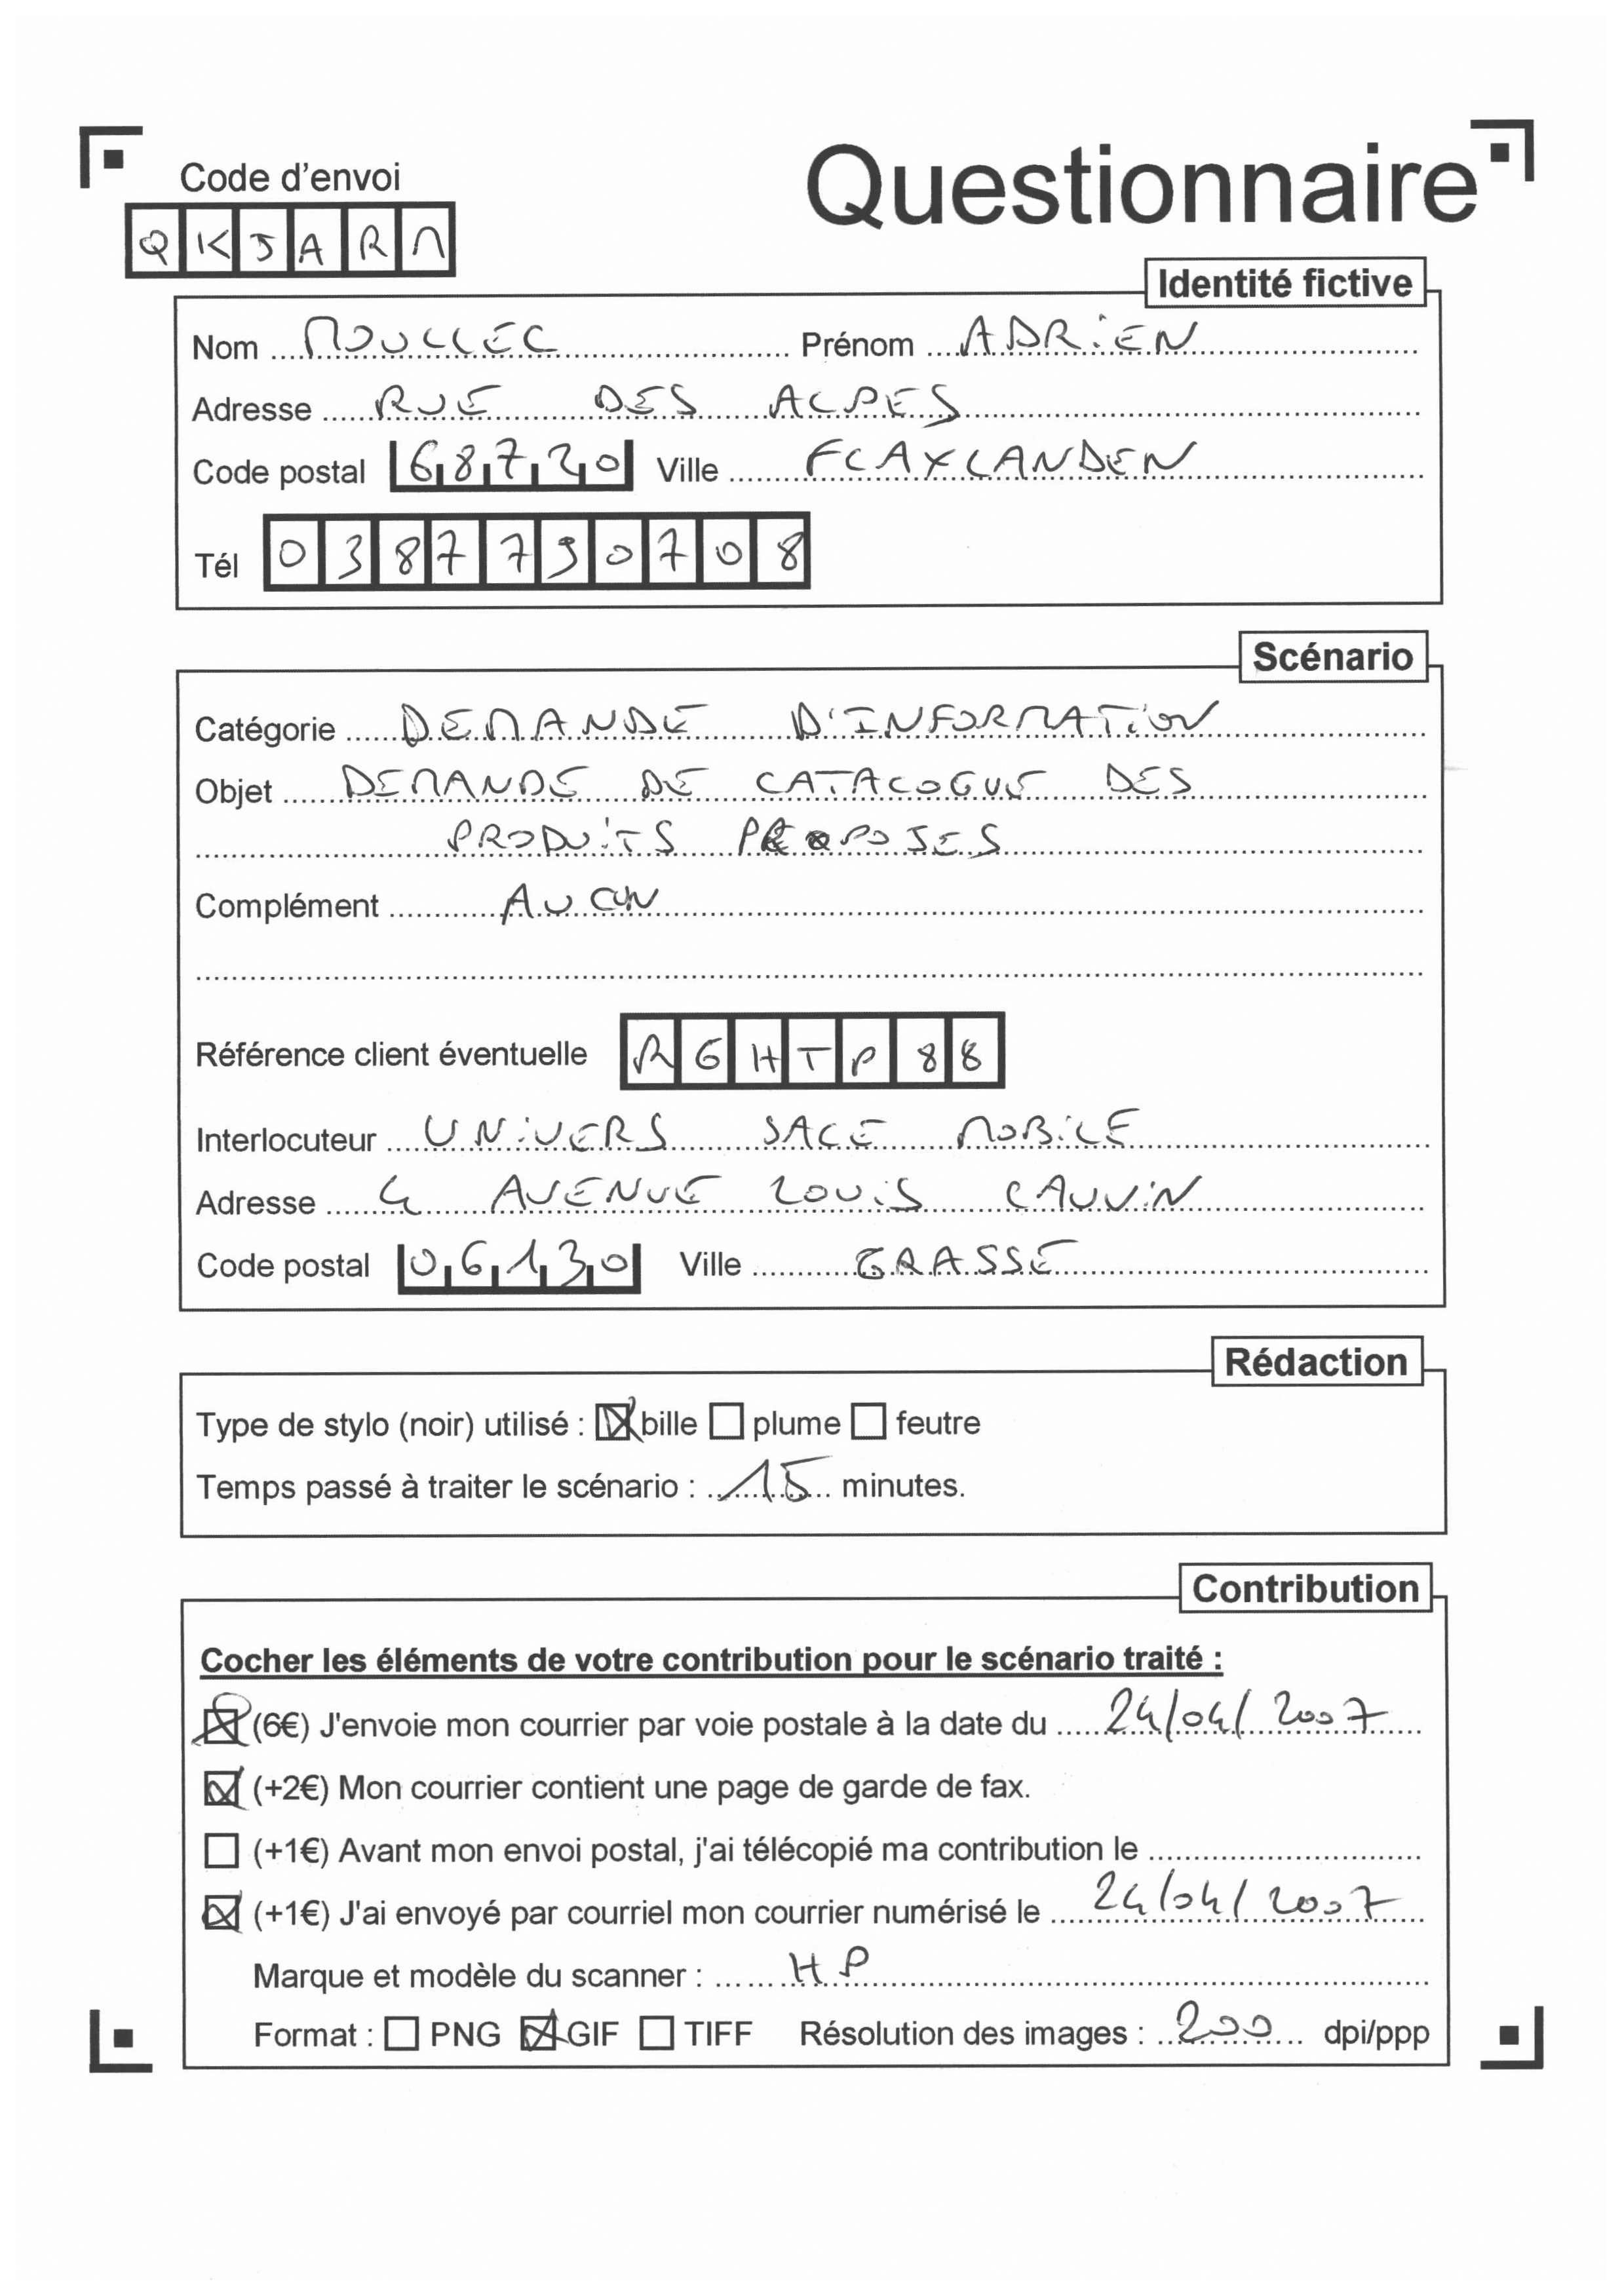 Code d'envoi
Questionnaire
QKJARM
Identité fictive
Nom MOULLEC Prénom ADRIEN
Adresse RUE DES ALPES
Code postal 68720 Ville FLAXLANDEN
Tél 0387730708
Scénario
Catégorie DEMANDE D'INFORMATION
Objet DEMANDE DE CATALOGUE DES
PRODUITS PROPOSES
Complément AUCUN
Référence client éventuelle RGHTP88
Interlocuteur UNIVERS SALE MOBILE
Adresse 4 AVENUE LOUIS CAUVIN
Code postal 06130 Ville GRASSE
Rédaction
Type de stylo (noir) utilisé : bille plume feutre
Temps passé à traiter le scénario : 15 minutes.
Contribution
Cocher les éléments de votre contribution pour le scénario traité :
(6€) J'envoie mon courrier par voie postale à la date du 24/04/2007
(+2€) Mon courrier contient une page de garde de fax.
(+1€) Avant mon envoi postal, j'ai télécopié ma contribution le
(+1€) J'ai envoyé par courriel mon courrier numérisé le 24/04/2007
Marque et modèle du scanner : HP
Format : PNG GIF TIFF Résolution des images : 200 dpi/ppp